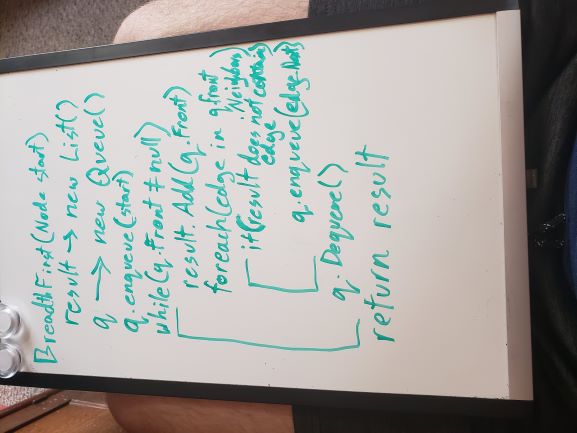 BreadthFirst(Node start)
result → new List()
q → new Queue()
q.enqueue(start)
while(q.Front ≠ null)
result.Add(q.Front)
foreach(edge in q.front.Neighbors)
if(result does not contains edge
q.enqueue(edge.Node)
q.Dequeue()
return result